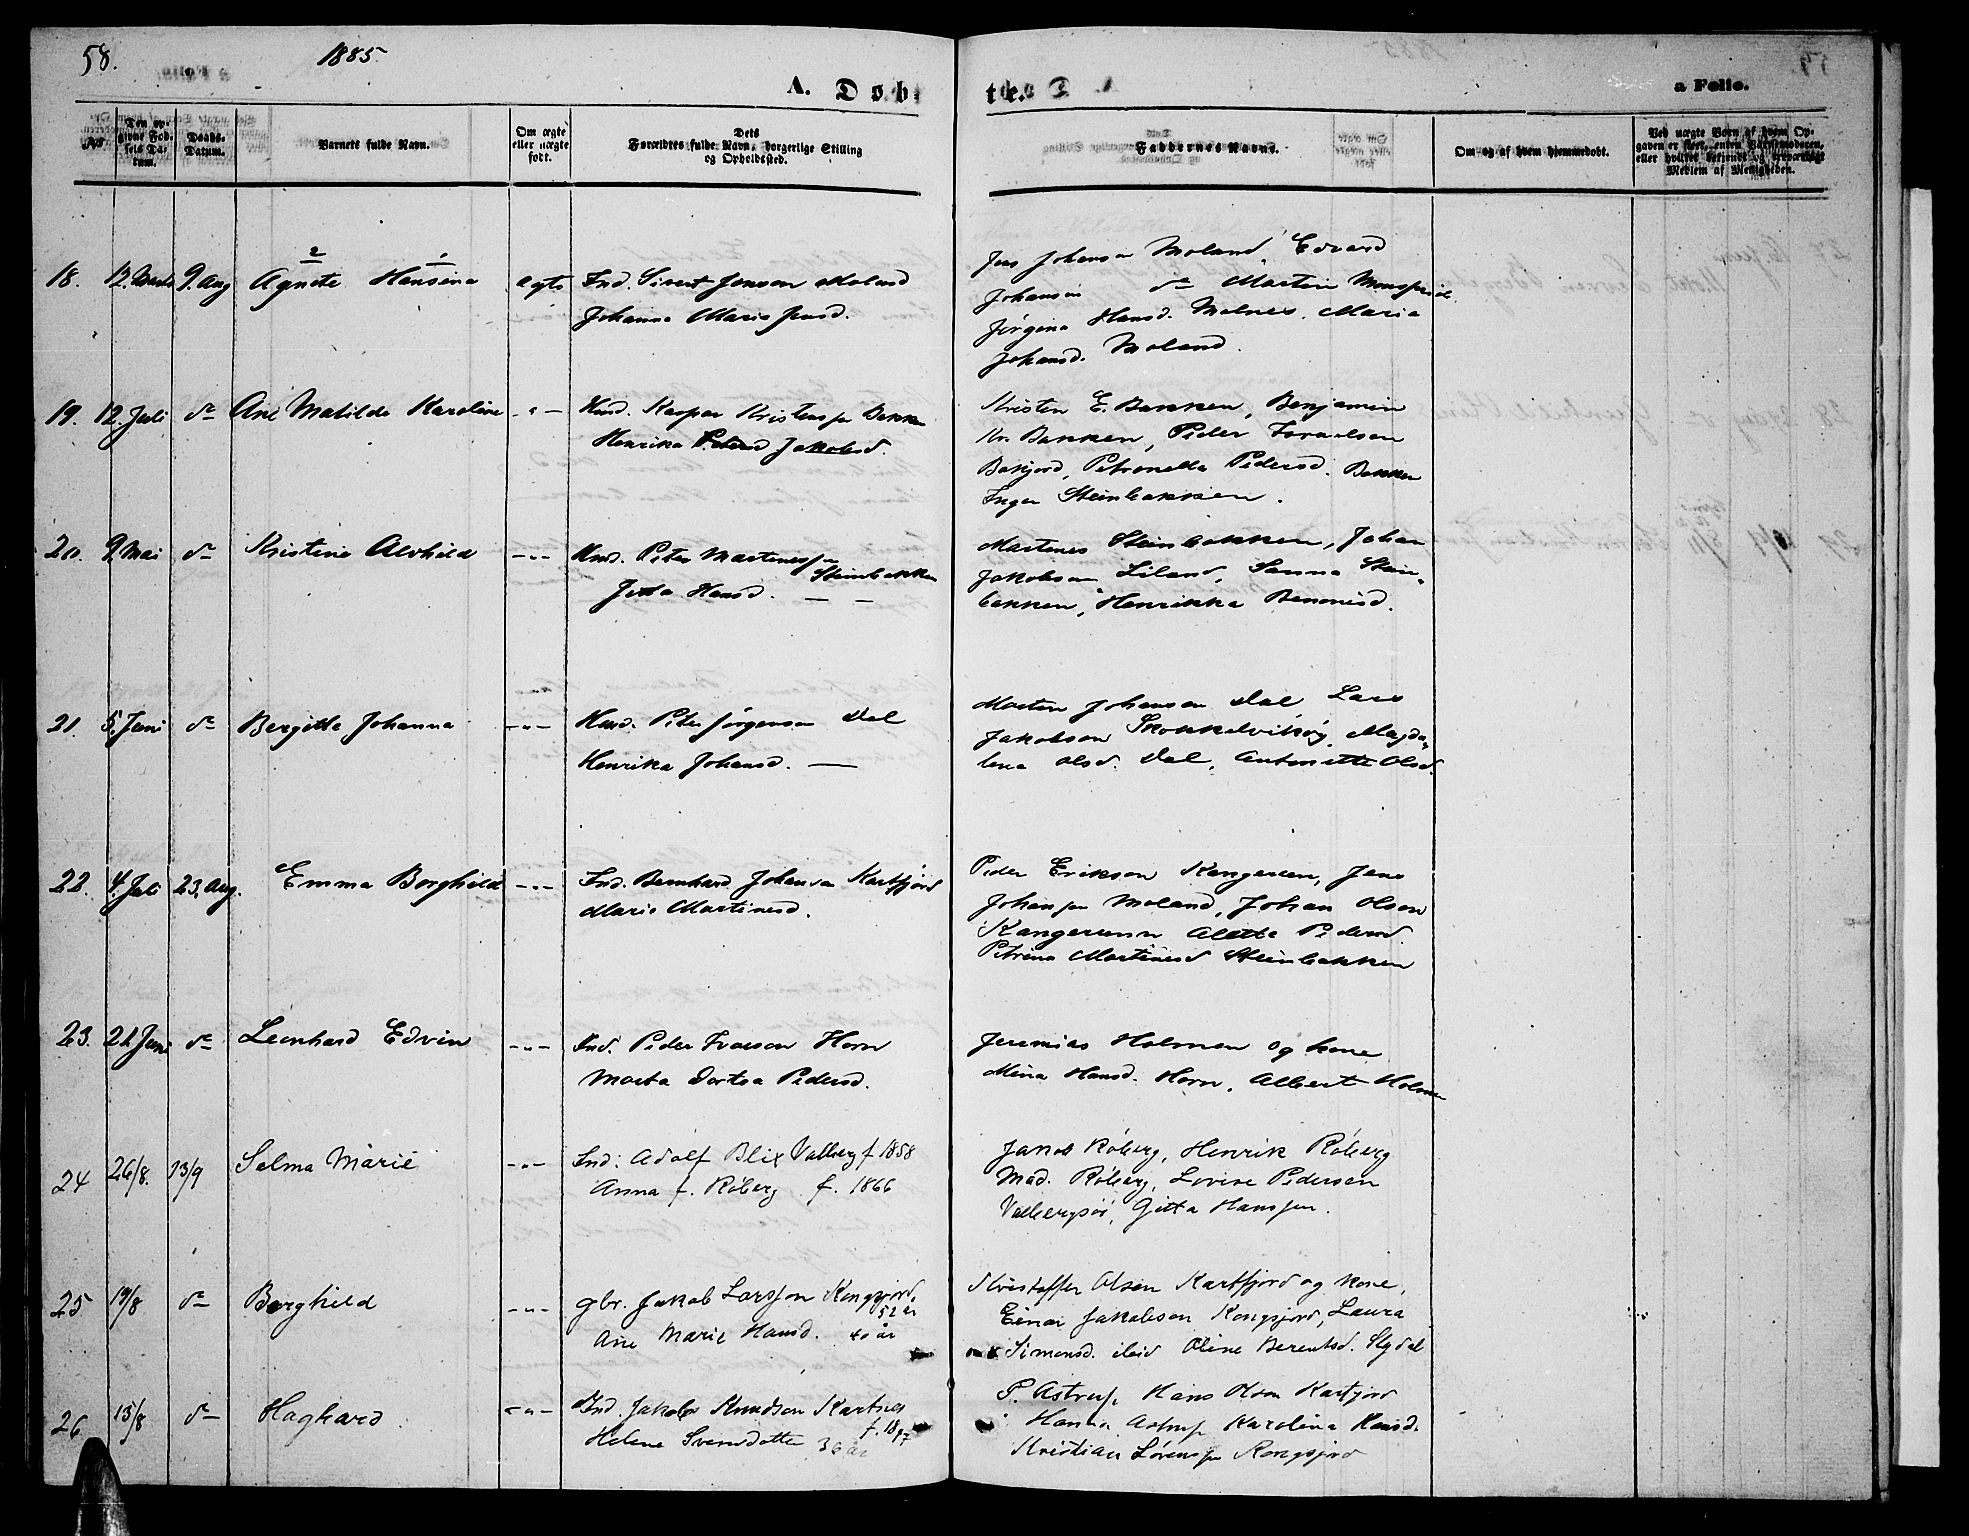 58. 1885.
A. Døb-
te.
a Folio.
No
Den opgivne Fødsels Datum.
Daabs-Datum.
Barnets fulde Navn.
Om ægte eller uægte født.
Dets Forældres fulde Navn, borgerlige Stilling og Opholdssted.
Faddernes Navne.
Om og af hvem hjemmedøbt.
Ved uægte Børn af hvem Opgaven er skeet, enten Barnemoderen, eller hvilket bekjendt og troværdigt Medlem af Menigheden.
18. 12. Marts 9. Aug Agnete 2 Hansina 1 ægte Ind. Sivert Jenson Moland
Johanna Maria Jensd.
Jens Johansen Moland, Edvard
Johansen do Martin
Jørgina Hansd. Molnes. Maria
Johansd. Moland.
19. 12. Juli do Ane Matilde Karoline -"- Hmd. Kaspar Kristensen Bakken
Henrika Jakobsd.
Kristen E. Bakken, Benjamin
Kr. Bakken, Peder Israelsen
Bakjord, Petronella Pedersd. Bakken
Inger Steinbakken.
20. 9. Mai do Kristine Alvhild -"- Hmd. Peter Martinussen
Steinbakken
Jetta Hansd. — —
Martines Steinbakken, Johan
Jakobsen Liland, Sanna Stein-
bakken, Henrikka Benonisd.
21. 5. Juni do Bergitte Johanna -"- Hmd. Peter Jørgensen Dal
Henrika Johansd. —
Morten Johansen Dal Lars
Jakobson Skokkelvikøg, Magda-
lena Olsd. Dal, Antonette Olsd.
22. 4. Juli 23. Aug. Emma Borghild -"- Ind. Bernhard Johansen Kartfjord
Marie Martinesd.
Peder Erikson Kangerurn, Jens
Johansen Moland, Johan Olson
Kangerurn Alette Pedersd.
Petrina Martinesd Steinbakken
23. 21 Juni do Leonhard Edvin -"- Ind. Peder Ivarson Horn
Marta Dortea Pedersd.
Jeremias Holmen og kone
Mina Hansd. Horn. Albert Holmen
24 26/8. 13/9 Selma Marie -"- Ind. Adolf Blix Valberg f 1858
Anna f. Røberg f. 1866
Jakob Røberg, Henrik Røberg
Mad. Røberg, Lovise Pedersen
Valbergsøi, Gitta Hanssen.
25 19/8 do Borghild -"- gbr. Jakob Larssen Kongsjord,
52 år
Ane Marie Hansd. 40 år
Kristoffer Olsen Kartfjord og kone,
Einar Jakobsen Kongsjord, Laura
Simonsd. ibid Oline Berentsd. Slydal
26 13/8 do Haghard -"- Ind. Jakob Knudsen Kartnes
Helene Svensdatter 36 år
P. Astrup, Hans Olsen Kartfjord
Hanna Astrup Karolina Hansd.
Kristian Lorenssen Kongsjord